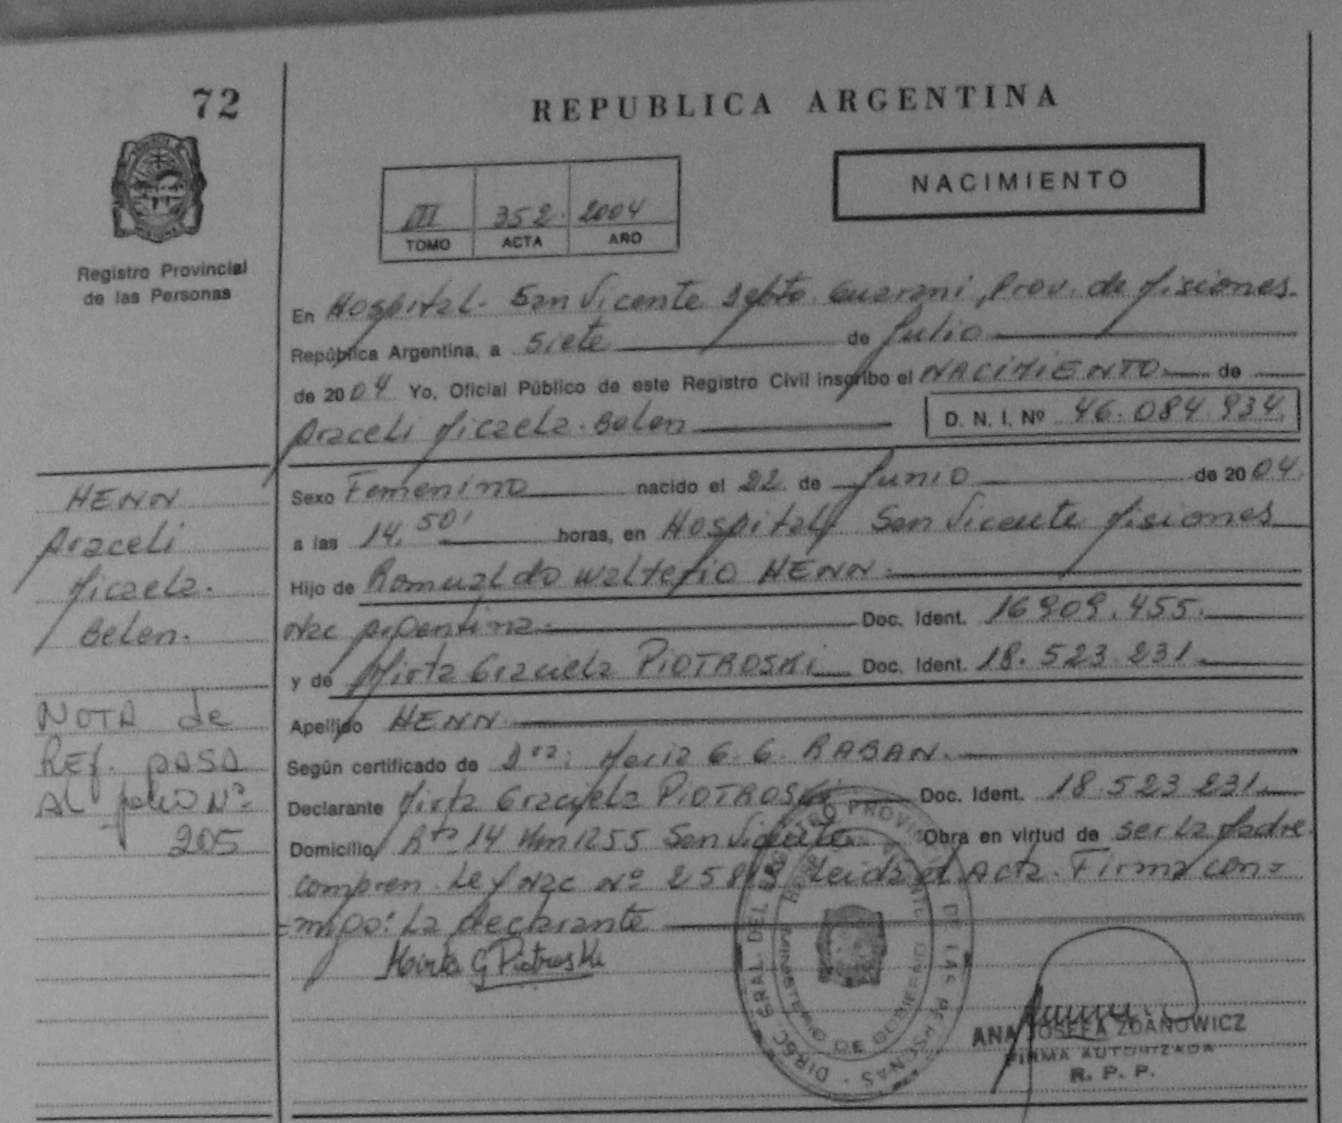 72
REPUBLICA ARGENTINA
NACIMIENTO
III 352 2004
TOMO ACTA AÑO
Registro Provincial
de las Personas
En Hospital San Vicente Dpto. Guarani, Prov. de Misiones.
República Argentina, a siete de Julio
de 2004 Yo, Oficial Público de este Registro Civil inscribo el NACIMIENTO de
Araceli Micaela Belen D. N. I. Nº 46.084.934
HENN
Araceli
Micaela.
Belen.
NOTA de
Ref. PASA
AL folio Nº
205
Sexo Femenino nacido el 22 de Junio de 2004
a las 14,50' horas, en Hospital San Vicente Misiones
Hijo de Romualdo Walterio HENN.
Nac Argentina. Doc. Ident. 16909.455.
y de Mirta Graciela PIOTROSKI Doc. Ident. 18.523.231.
Apellido HENN
Según certificado de Dra: Maria G. G. RABAN.
Declarante Mirta Graciela PIOTROSKI Doc. Ident. 18.523.231.
Domicilio Rta 14 Km 1255 San Vicente Obra en virtud de ser La Madre
compren. Ley Nac Nº 258 Leida el Acta. Firma con=
=migo: La declarante
Mirta G Piotroski
DIREC. GRAL. DEL REGISTRO PROVINCIAL DE LAS PERSONAS
MINISTERIO DE GOBIERNO
ANA JOSEFA ZDANOWICZ
FIRMA AUTORIZADA
R. P. P.